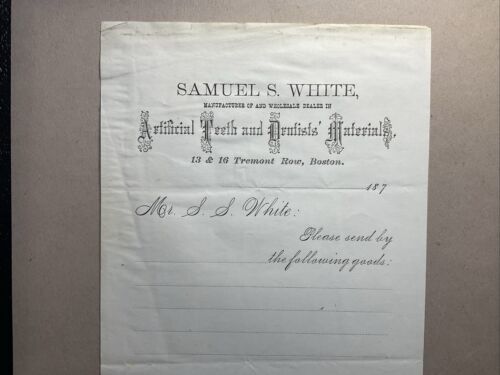 SAMUEL S. WHITE,
MANUFACTURER OF AND WHOLESALE DEALER IN
Artificial Teeth and Dentists' Materials,
13 & 16 Tremont Row, Boston.
187
Mr. S. S. White:
Please send by
the following goods: